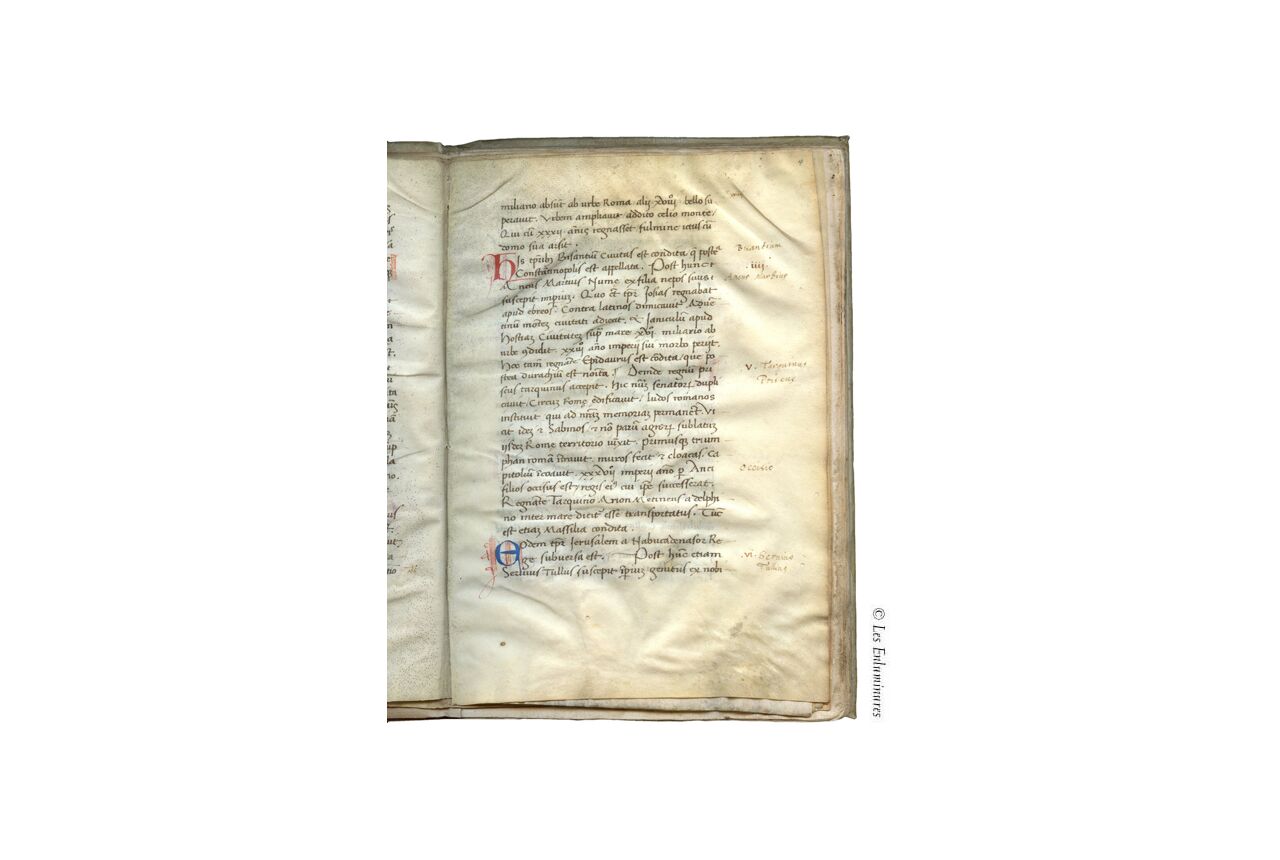 miliano absũt ab urbe Roma alij xviij bello su
peravit. Vrbem ampliavit addito celio monte/
Qui cũ xxxij annis regnasset fulmine ictus cũ
domo sua arsit.
His tp̃rib̃ Bisantiũ Civitas est condita q̃ postea
Constãtinopolis est appellata. Post hunc
Ancus Martius Nume ex filia nepos suus
suscepit imp̃iuz. Quo et̃ tp̃r Josias regnabat
apud ebreos. Contra latinos dimicavit Avẽ
tinũ montez civitati adiecit. & Janiculũ apud
hostiaz Civitatez sup̃ mare xvj miliario ab
urbe ꝯdidit. xxiij año imperij sui morbo perijt.
Hoc tam̃ regnãte Epidaurus est cõdita / que po
stea durachiũ est noĩata. Deinde regnũ pri
scus tarquinus accepit. Hic nũz senatorꝝ dupli
cavit / Circuz Rome edificavit / ludos romanos
instituit qui ad nr̃az memoriaz permanet̃. Vi
cit idez & Sabinos & nõ parũ agrorꝝ sublatuz
ijsdez Rome territorio iũxit. primusqz trium
phan romã ĩtravit. muros fecit & cloacas. Ca
pitoliũ ĩcoavit. xxxvij imperij año p̱ Anci
filios occisus est / regis ei9 cui ip̃e successerat.
Regnãte Tarquino Arion Metineus a delphi
no inter mare dicit̃ esse transportatus. Tũc
est etiaz Massilia condita.
Eodem tp̃r Jerusalem a Nabucadenasor Re
ge subversa est. Post hũc etiam
Servius Tullus suscepit ip̃iuz genitus ex nobi
Bisantium
.iiij.
Ancus Martius
v. Tarquinus
Priscus
Occisio
.vi. Servius
Tullus
4
© Les Enluminures